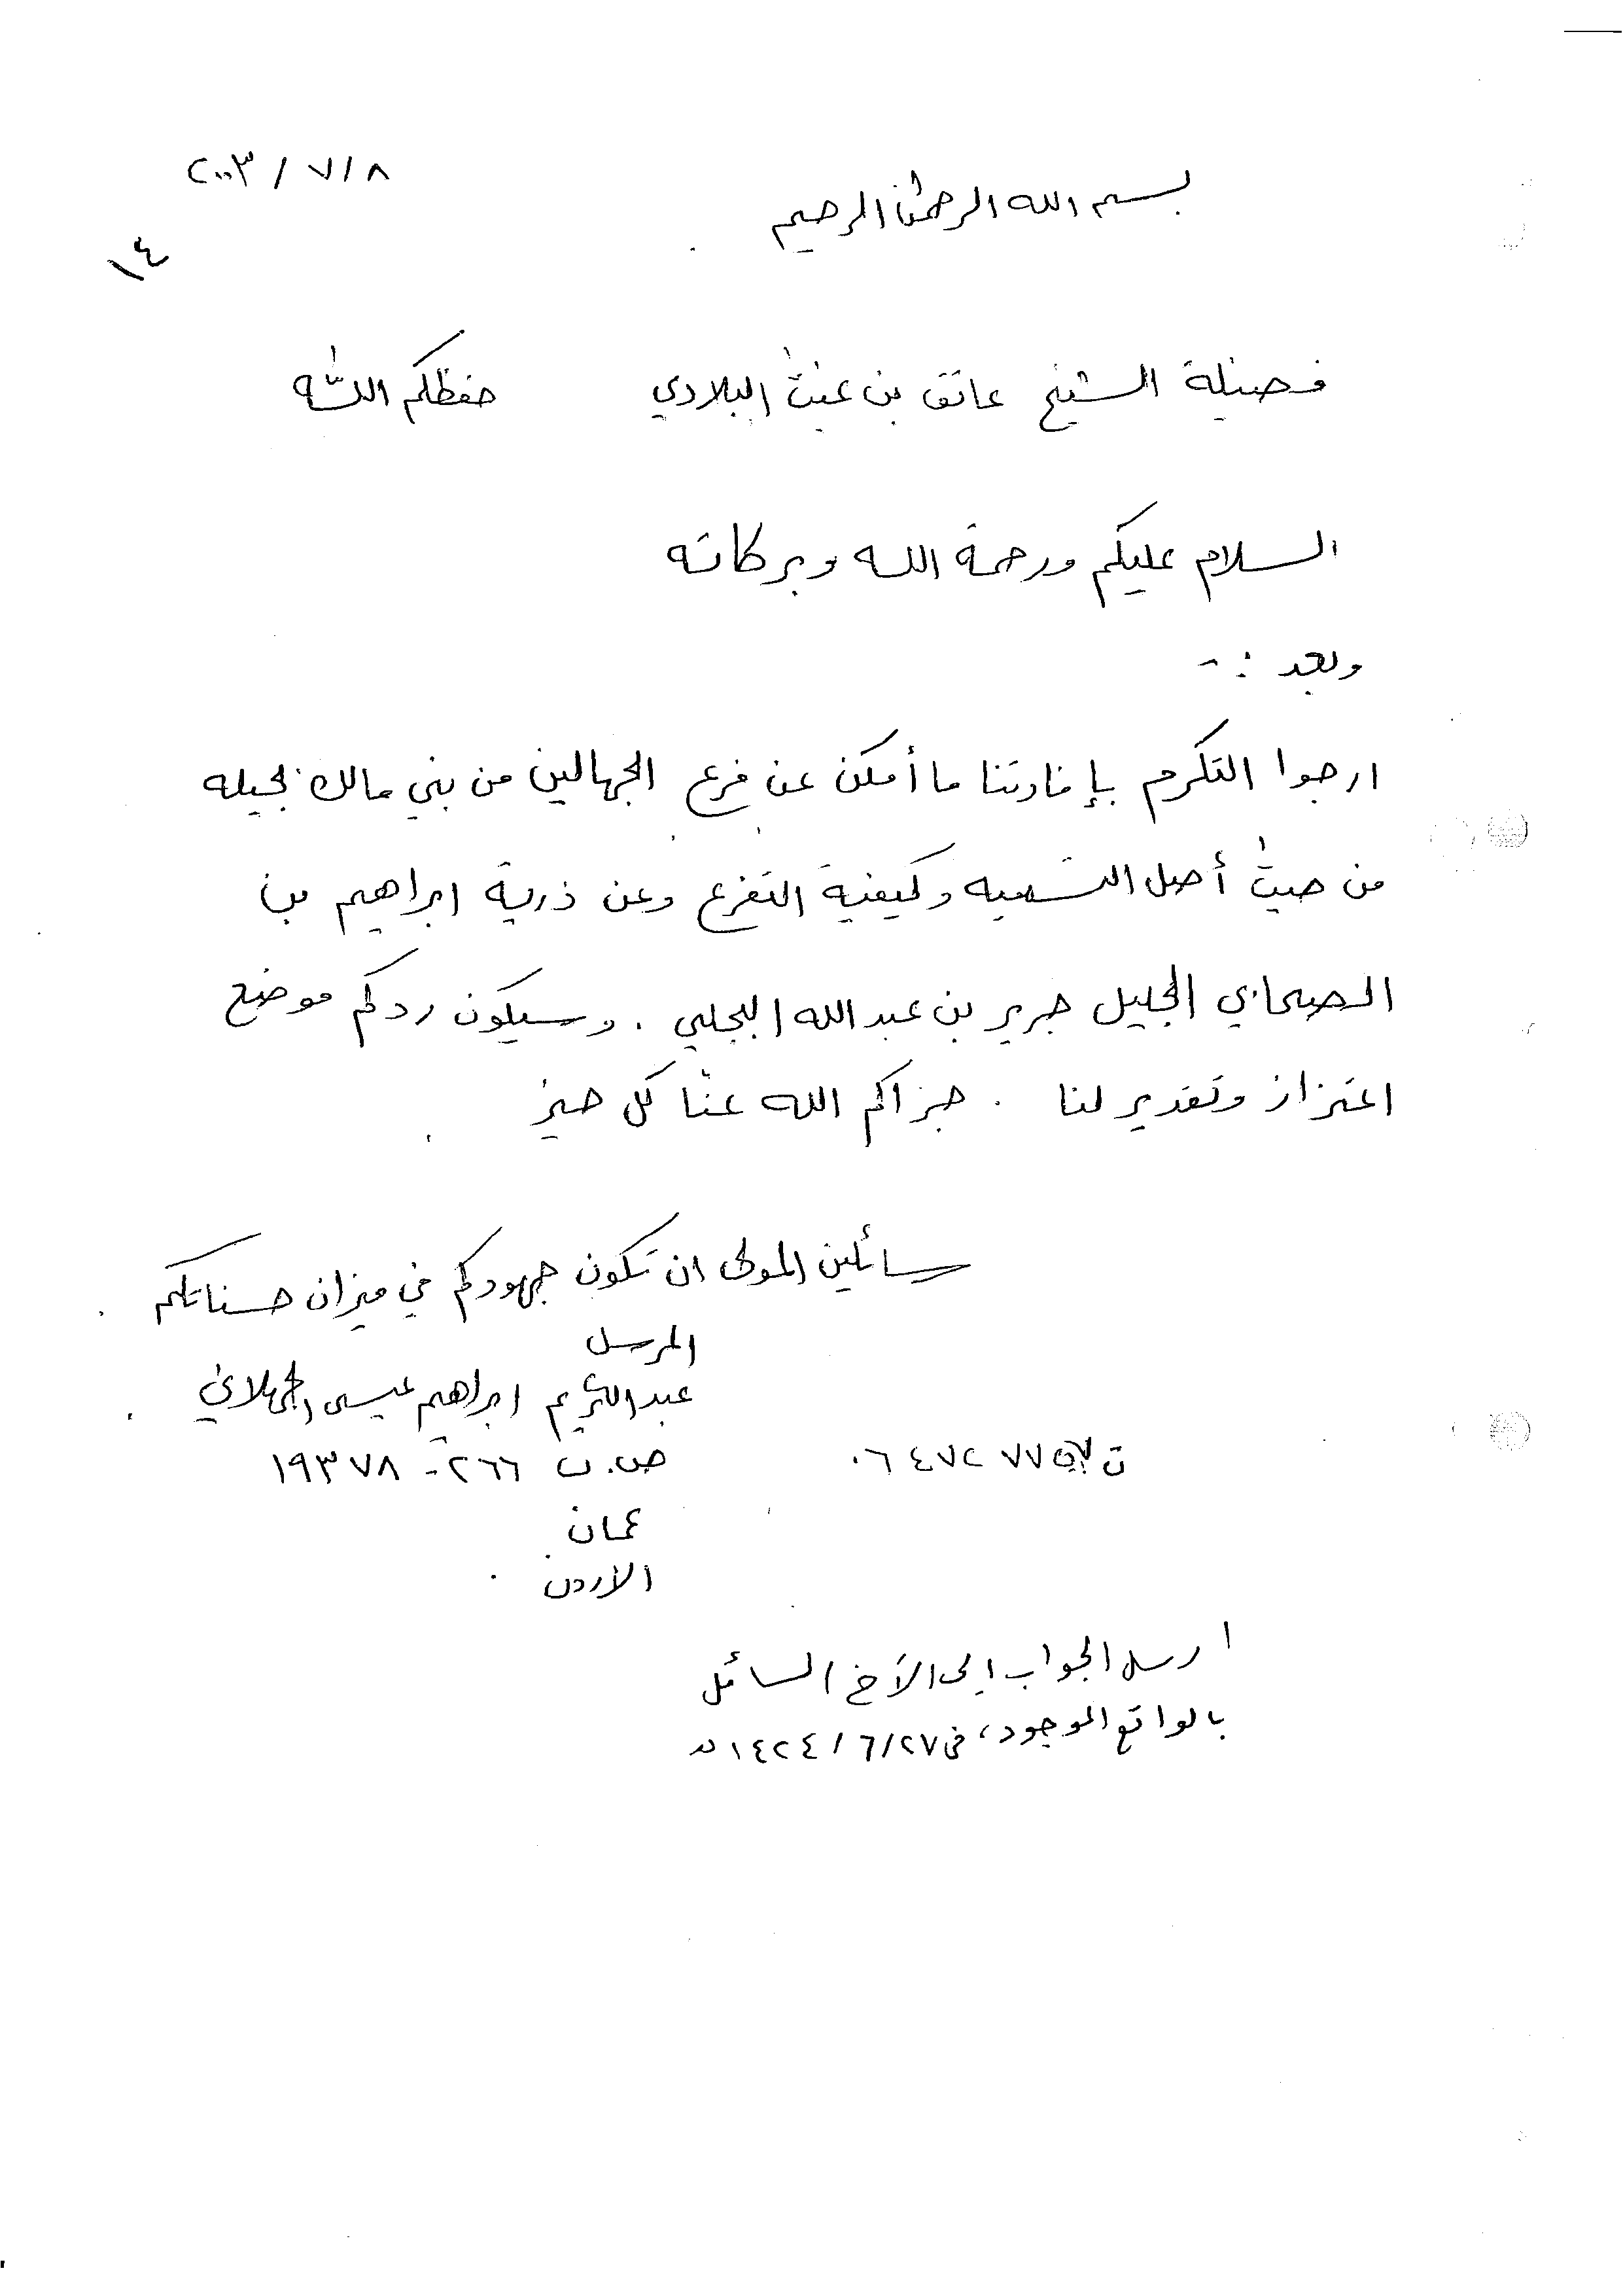 ٢٠٠٣ / ٧ / ٨
بسم الله الرحمن الرحيم
١٤
فضيلة الشيخ عاتق بن غيث البلادي حفظكم الله
السلام عليكم ورحمة الله وبركاته
وبعد :-
ارجوا التكرم بإفادتنا ما أمكن عن فرع الجهالين من بني مالك بجيله
من حيث أصل التسميه وكيفية التفرع وعن ذرية ابراهيم بن
الصحابي الجليل جرير بن عبد الله البجلي . وسيكون ردكم موضع
اعتزاز وتقدير لنا . جزاكم الله عنّا كل خير
سائلين المولى ان تكون جهودكم في ميزان حسناتكم .
المرسل
عبد الكريم ابراهيم عيسى الجهلاني .
ص.ب ٢٦٦ - ١٩٣٧٨
ت ٠٦ ٤٧٢ ٧٧
عمان
الأردن .
ارسل الجواب إلى الأخ السائل
بالواقع الموجود، في ١٤٢٤/٦/٢٧ هـ